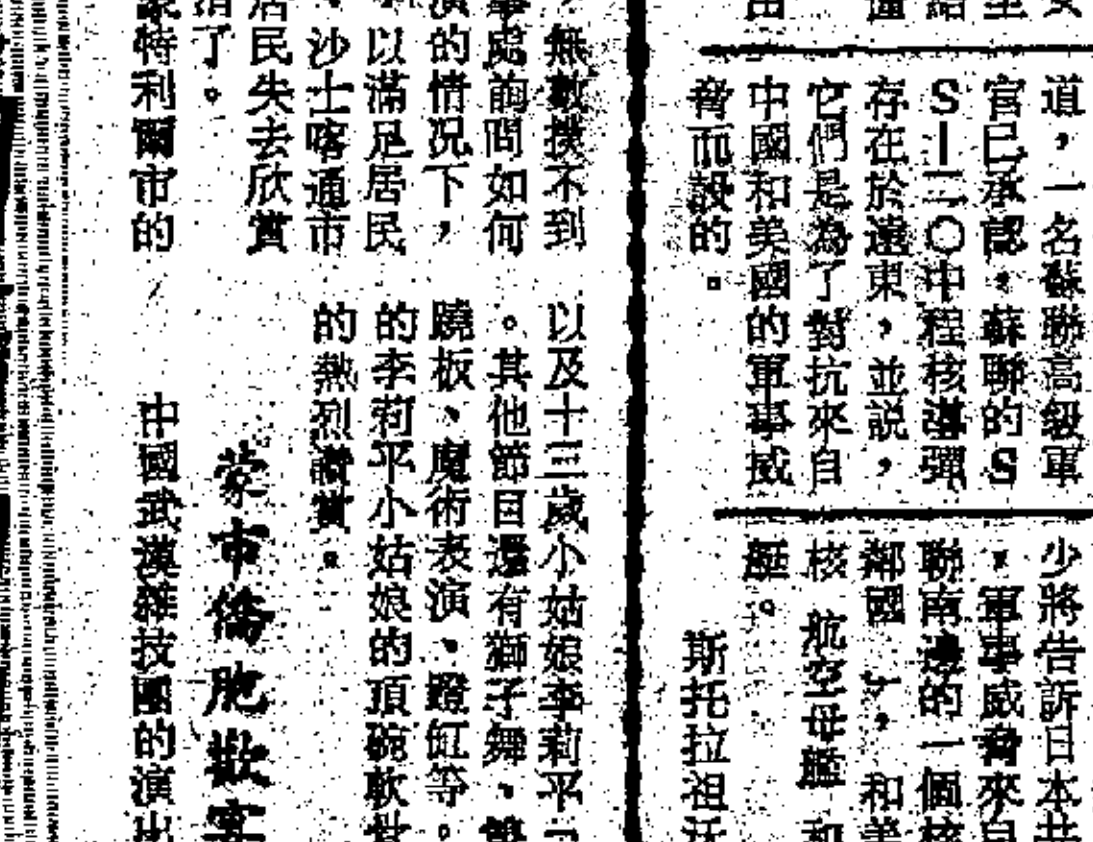 道，一名蘇聯高級軍
官已承認，蘇聯的S
S—二〇中程核導彈
存在於遠東，並説，
它們是為了對抗來自
中國和美國的軍事威
脅而設的。
少將告訴日本共
，軍事威脅來自
聯南邊的一個核
鄰國」，和美
核 航空母艦 和
艇。
斯托拉祖沃
，無數撲不到
事處詢問如何
演的情況下，
，以滿足居民
，沙士喀通市
居民失去欣賞
清了。
蒙特利爾市的
以及十三歲小姑娘李莉平
。其他節目還有獅子舞、
蹺板、魔術表演、蹬缸等。
的李莉平小姑娘的頂碗軟
的熱烈讚賞。
蒙市僑胞歡宴
中國武漢雜技團的演出